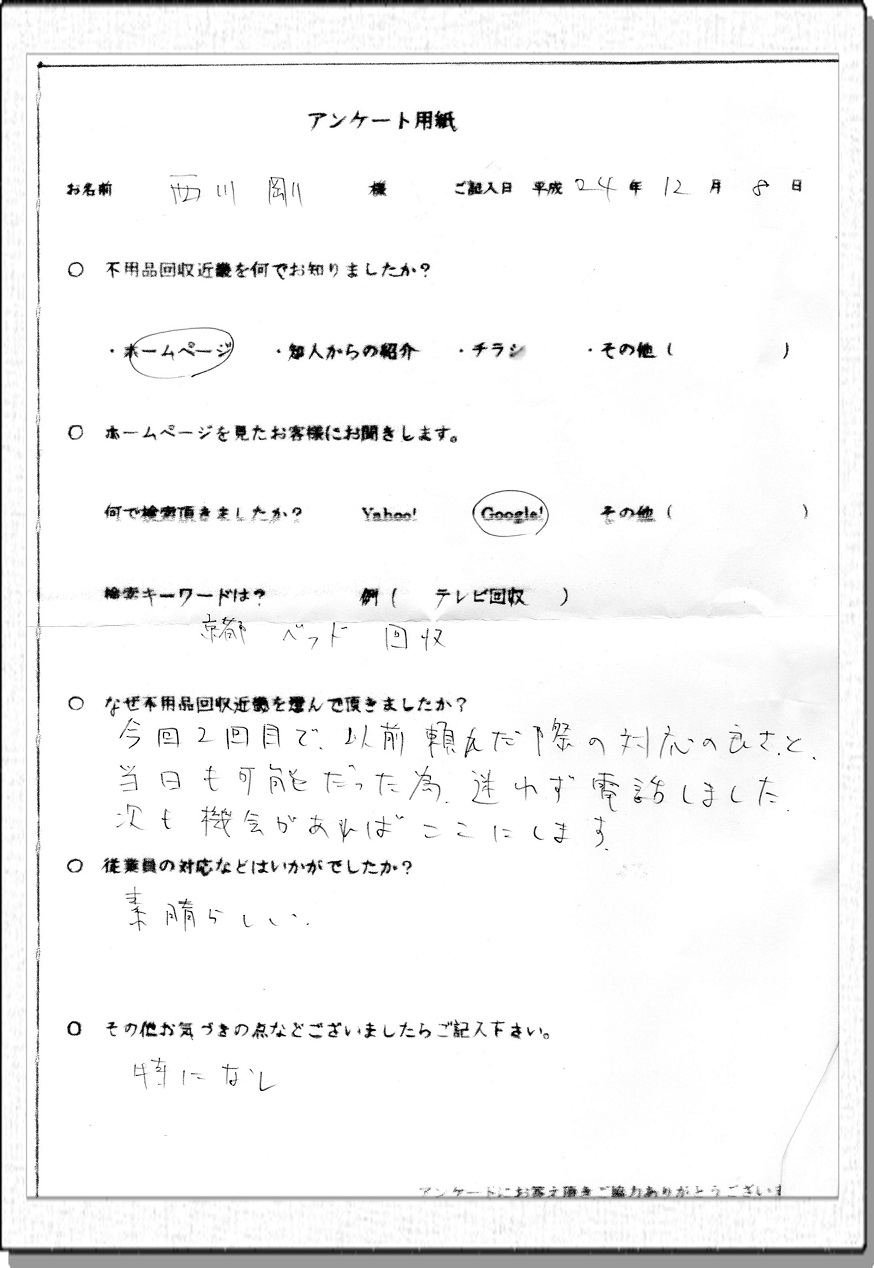 アンケート用紙
お名前 西川 剛 様 ご記入日 平成 24 年 12 月 8 日
○ 不用品回収近畿を何でお知りましたか？
・ホームページ ・知人からの紹介 ・チラシ ・その他（ ）
○ ホームページを見たお客様にお聞きします。
何で検索頂きましたか？ Yahoo! Google! その他（ ）
検索キーワードは？ 例（ テレビ回収 ）
京都 ベッド 回収
○ なぜ不用品回収近畿を選んで頂きましたか？
今回2回目で、以前頼んだ際の対応の良さと、
当日も可能だった為、迷わず電話しました。
次も機会があればここにします。
○ 従業員の対応などはいかがでしたか？
素晴らしい。
○ その他お気づきの点などございましたらご記入下さい。
特になし
アンケートにお答え頂きご協力ありがとうございま